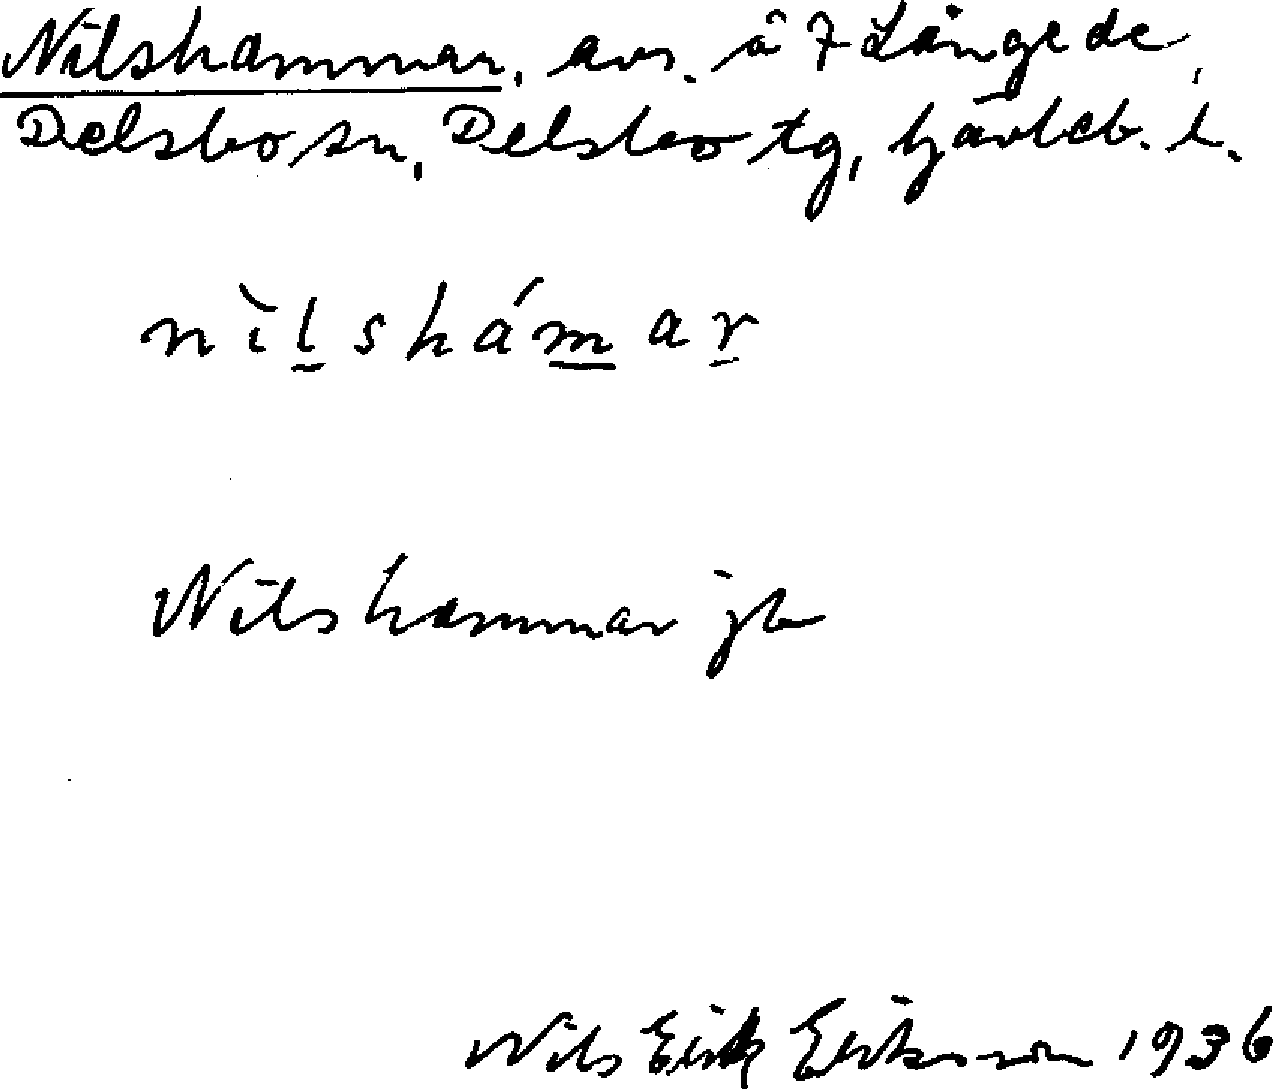 Nilshammar, avs. å 7 Långede,
Delsbo sn, Delsbo tg, Gävleb. l.
nìlshámar
Nilshammar jb
Nils Erik Eriksson 1936